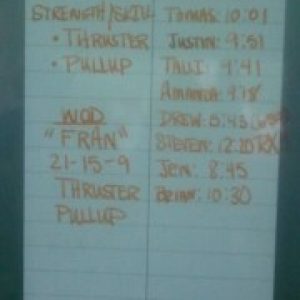 STRENGTH/SKILL
• THRUSTER
• PULLUP
WOD
"FRAN"
21-15-9
THRUSTER
PULLUP
TOMAS: 10:01
JUSTIN: 9:51
9:41
AMANDA: 9:18
DREW: 5:43
STEVEN: 12:20 RX
JEN: 8:45
BRIAN: 10:30